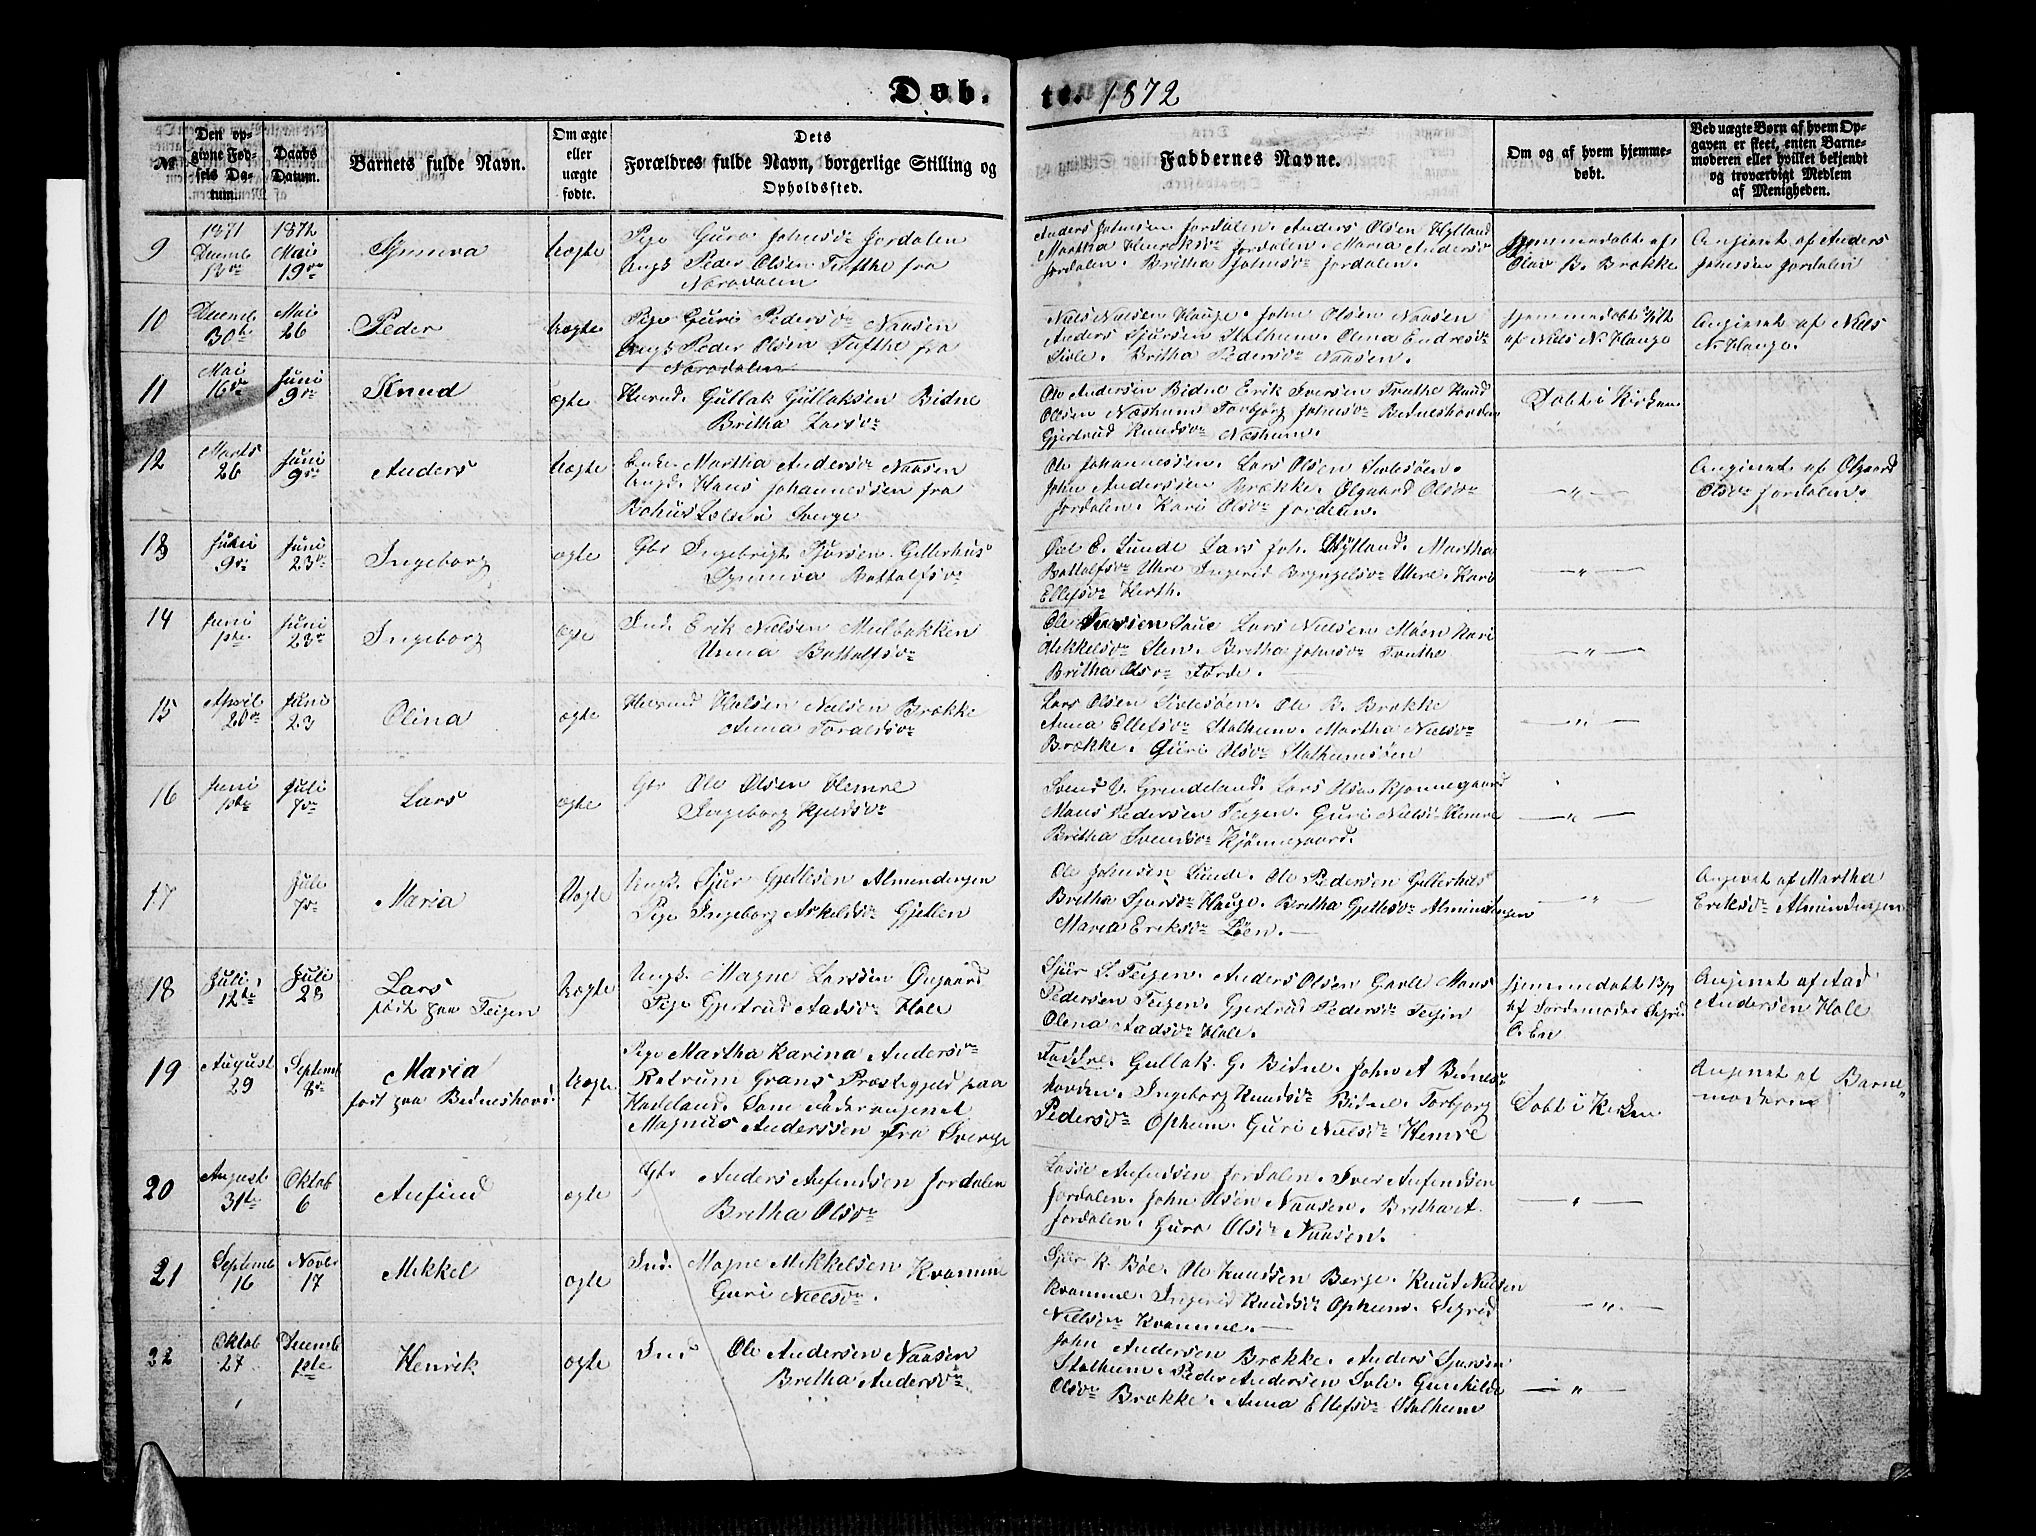 Døb. te. 1872
№
Den opgivne Fødsels Datum.
Daabs Datum.
Barnets fulde Navn.
Om ægte eller uægte fødte.
Dets Forældres fulde Navn, borgerlige Stilling og Opholdssted.
Faddernes Navne.
Om og af hvem hjemmedøbt.
Ved uægte Børn af hvem Opgaven er skeet, enten Barnemoderen eller hvilket bekjendt og troværdigt Medlem af Menigheden.
9
1871
Decemb
13de
1872
Mai
19de
Synneva
Uægte
Pige Guro Johnsdr Jordalen
Ungk Peder Olsen Tufthe fra
Nærødalen
Anders Johnsen Jordalen. Anders Olsen Hylland
Martha Henriksdr Jordalen. Maria Andersdr
Jordalen. Britha Johnsdr Jordalen.
Hjemmedøbt af
Olav B. Brække
Angivet af Anders
Johnsen Jordalen
10
Decemb
30te
Mai
26
Peder
Uægte
Pige Guri Pedersdr Naasen
Ungk Peder Olsen Tufthe fra
Nærødalen
Niels Nielsen Hauge. John Olsen Naasen
Anders Sjursen Stalheim. Olena Endresdr
Sivle. Britha Pedersdr Naasen.
af Niels N. Hauge
Angivet af Niels
N. Hauge.
11
Mai
16de
Juni
9de
Knud
ægte
Husmd. Gullak Gullaksen Bidne
Britha Larsdr
Ole Andersen Bidne Erik Iversen Tvinthe Knud
Olsen Næsheim Torbjørg Johnsdr Bidneshovden
Gjertrud Knudsdr Næsheim.
Døbt i Kirken
12
Marts
26
Juni
9de
Anders
Uægte
Enke Martha Andersdr Naasen
Ungk Hans Johannessen fra
Bohus Lehn i Sverge
Ole Johannessen. Lars Olsen Sivlesøen.
John Andersen Brække. Olgaard Olsdr
Jordalen. Kari Olsdr Jordalen.
— „ —
Angivet af Olgaard
Olsdr Jordalen.
13
Juni
9de
Juni
23de
Ingeborg
ægte
Gbr Ingebrigt Sjursen Gillerhus
Synneva Bottolfsdr
Joel E. Lunde Lars Joh. Hylland. Martha
Bottolfsdr Uhre Ingerid Bryngelsdr Uhre. Kari
Ellefsdr Hirth.
— „ —
14
Juni
1ste
Juni
23de
Ingeborg
ægte
Ind. Erik Nielsen Mulbakken
Unna Bottolfsdr
Ole Larsen Saue Lars Nielsen Møen Kari
Mikkelsdr Steen. Britha Johnsdr Tvinthe
Britha Olsdr Førde. —
— „ —
15
April
20de
Juni
23
Olina
ægte
Husmd Nielsen Brække
Anna Toraldsdr
Lars Olsen Sivlesøen. Ole B. Brække
Anna Ellefsdr Stalheim. Martha Nielsdr
Brække. Guri Olsdr Stalheimsøen
— „ —
16
Juni
1ste
Juli
7de
Lars
ægte
Gbr Ole Olsen Hemre
Ingeborg Kjeldsdr
Svend V. Grindeland. Lars Olsen Kjønnegaard
Mons Pedersen Teigen. Guri Nielsdr Hemre
Britha Svendsdr Kjønnegaard.
— „ —
17
Juli
7de
Maria
Uægte
Ungk. Sjur Gjetlesen Almendingen
Pige Ingeborg Askeldsdr Gjellen
Ole Johnsen Lunde. Ole Pedersen Gillerhus
Britha Sjursdr Hauge. Britha Gjetlesdr Almindingen
Maria Eriksdr Løen. —
— „ —
Angivet af Martha
Eriksdr Almindingen
18
Juli
12te
Juli
28
Lars
født paa Teigen
Uægte
Ungk. Magne Larssen Øvsgaard
Pige Gjertrud Aadsdr Hole
Sjur S. Teigen. Anders Olsen Gavle Mons
Pedersen Teigen. Gjertrud Pedersdr Teigen
Olena Aadsdr Hole.
Hjemmedøbt
af Jordemoder
Angivet af Aad
Andersen Hole
19
August
29
Septemb
8de
Maria
født paa Bidneshovd.
Uægte
Pige Martha Karina Andersdr
Rotrum Grans Præstegjeld paa
Hadeland. Som Fader angivet
Magnus Anderssen fra Sverge
Faddre. Gullak G. Bidne. John A Bidneshovden.
Ingeborg Knudsdr Bidne. Torbjørg
Pedersdr Opheim. Guri Nielsdr Hemre
Døbt i Kirken
Angivet af Barnemoderen
20
August
31te
Oktob
6
Anfind
ægte
Gbr Anders Anfindsen Jordalen
Britha Olsdr
Lasse Anfindsen Jordalen. Iver Anfindsen
Jordalen. John Olsen Naasen. Britha A.
Jordalen. Guro Olsdr Naasen.
— „ —
21
Septemb
16
Novbr
17
Mikkel
ægte
Ind. Magne Mikkelsen Kvamme
Guri Nielsdr.
Sjur K. Bøe. Ole Knudsen Berge. Knud Nielsen
Kvamme. Ingerid Knudsdr Opheim. Sigrid
Nielsdr Kvamme. —
— „ —
22
Oktob
27
Decemb
1ste
Henrik
ægte
Ind Ole Andersen Naasen
Britha Andersdr
John Andersen Brække. Anders Sjursen
Stalheim. Peder Andersen Sivle. Gunhilda
Olsdr Brække. Anna Ellefsdr Stalheim
— „ —